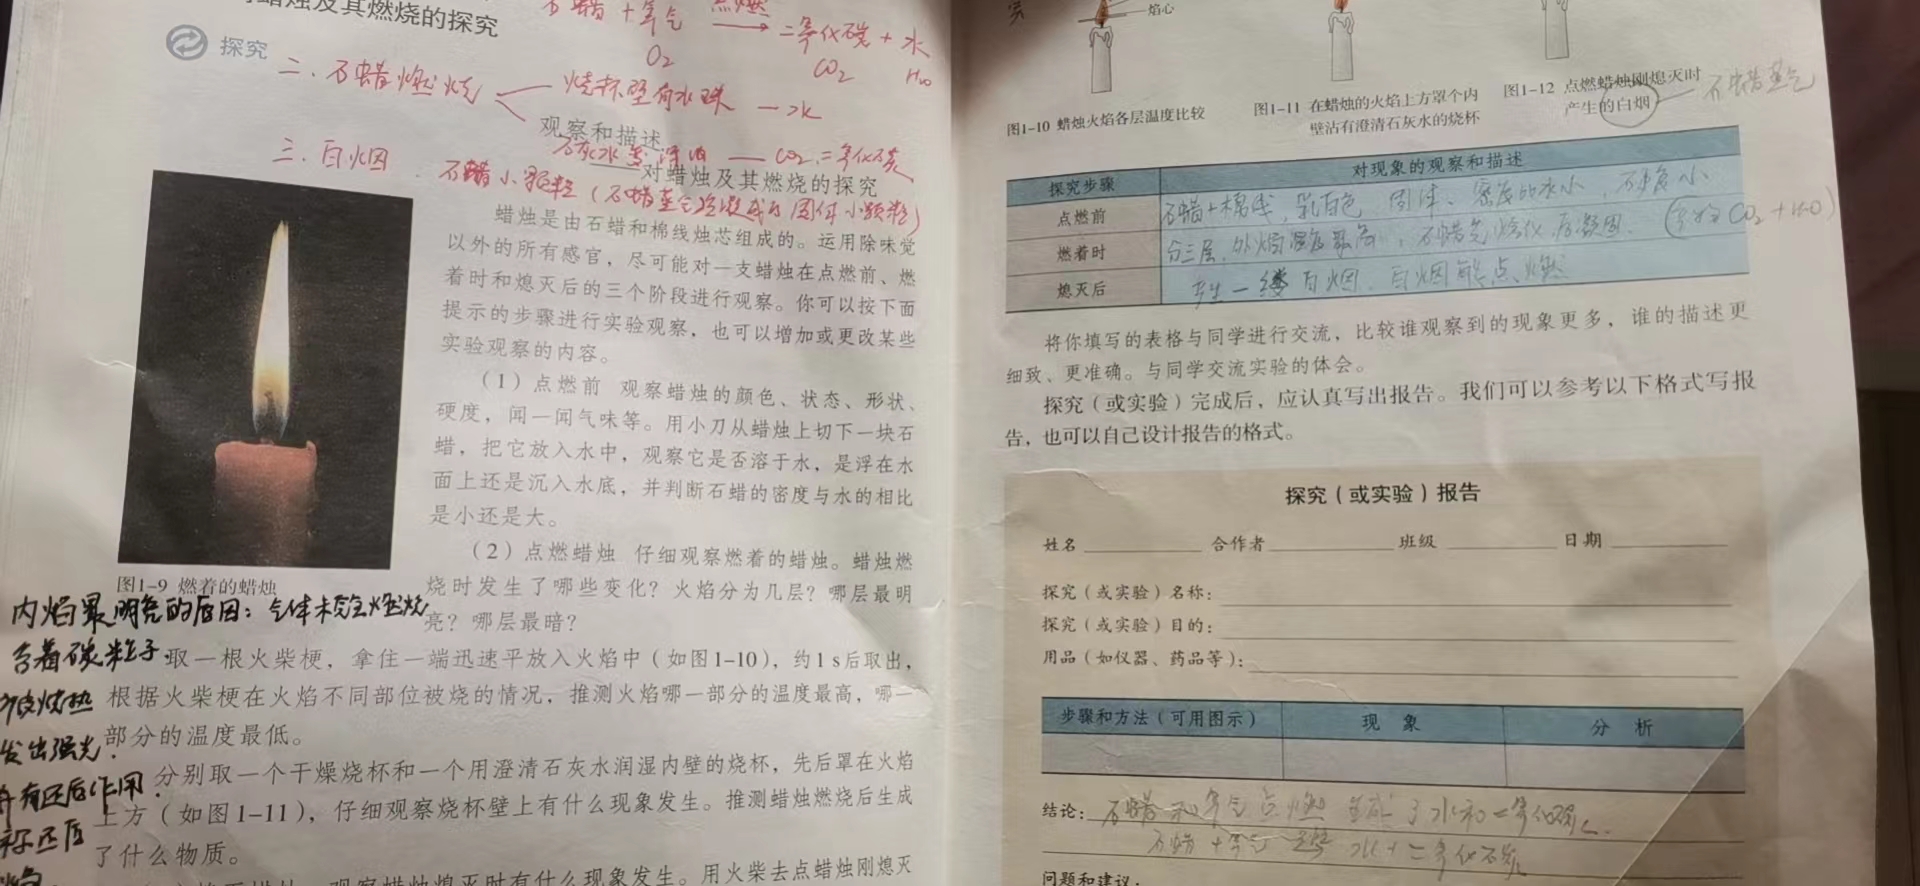 蜡烛及其燃烧的探究
石蜡 + 氧气 点燃 → 二氧化碳 + 水
O₂ CO₂ H₂O
探究
二、石蜡燃烧
烧杯壁有水珠 — 水
观察和描述
石灰水变浑浊 — CO₂ 二氧化碳
三、白烟 石蜡小颗粒（石蜡蒸气冷凝成的固体小颗粒）
对蜡烛及其燃烧的探究
蜡烛是由石蜡和棉线烛芯组成的。运用除味觉
以外的所有感官，尽可能对一支蜡烛在点燃前、燃
着时和熄灭后的三个阶段进行观察。你可以按下面
提示的步骤进行实验观察，也可以增加或更改某些
实验观察的内容。
（1）点燃前 观察蜡烛的颜色、状态、形状、
硬度，闻一闻气味等。用小刀从蜡烛上切下一块石
蜡，把它放入水中，观察它是否溶于水，是浮在水
面上还是沉入水底，并判断石蜡的密度与水的相比
是小还是大。
（2）点燃蜡烛 仔细观察燃着的蜡烛。蜡烛燃
烧时发生了哪些变化？火焰分为几层？哪层最明
亮？哪层最暗？
图1-9 燃着的蜡烛
内焰最明亮的原因：气体未完全燃烧
含着碳粒子
被灼热
发出强光．
并有还原作用．
称还原
取一根火柴梗，拿住一端迅速平放入火焰中（如图1-10），约1 s后取出，
根据火柴梗在火焰不同部位被烧的情况，推测火焰哪一部分的温度最高，哪一
部分的温度最低。
分别取一个干燥烧杯和一个用澄清石灰水润湿内壁的烧杯，先后罩在火焰
上方（如图1-11），仔细观察烧杯壁上有什么现象发生。推测蜡烛燃烧后生成
了什么物质。
观察蜡烛熄灭时有什么现象发生。用火柴去点蜡烛刚熄灭
焰心
图1-10 蜡烛火焰各层温度比较
图1-11 在蜡烛的火焰上方罩个内
壁沾有澄清石灰水的烧杯
图1-12 点燃蜡烛刚熄灭时
产生的白烟
石蜡蒸气
探究步骤 对现象的观察和描述
点燃前 石蜡+棉线，乳白色 固体、密度比水小，硬度小
燃着时 分三层，外焰温度最高，石蜡先熔化后凝固．（生成CO₂+H₂O）
熄灭后 产生一缕白烟，白烟能点燃
将你填写的表格与同学进行交流，比较谁观察到的现象更多，谁的描述更
细致、更准确。与同学交流实验的体会。
探究（或实验）完成后，应认真写出报告。我们可以参考以下格式写报
告，也可以自己设计报告的格式。
探究（或实验）报告
姓名 合作者 班级 日期
探究（或实验）名称：
探究（或实验）目的：
用品（如仪器、药品等）：
步骤和方法（可用图示） 现 象 分 析
结论：石蜡和氧气点燃 生成了水和二氧化碳．
石蜡 + 氧气 点燃 水 + 二氧化碳
问题和建议：